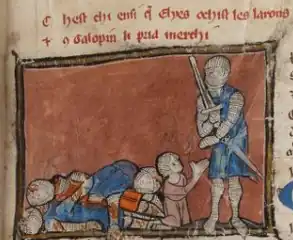 C hest chi ensi q̃ Elyes ochist les larons
⁊ ꝯ Galopin li pria merchi